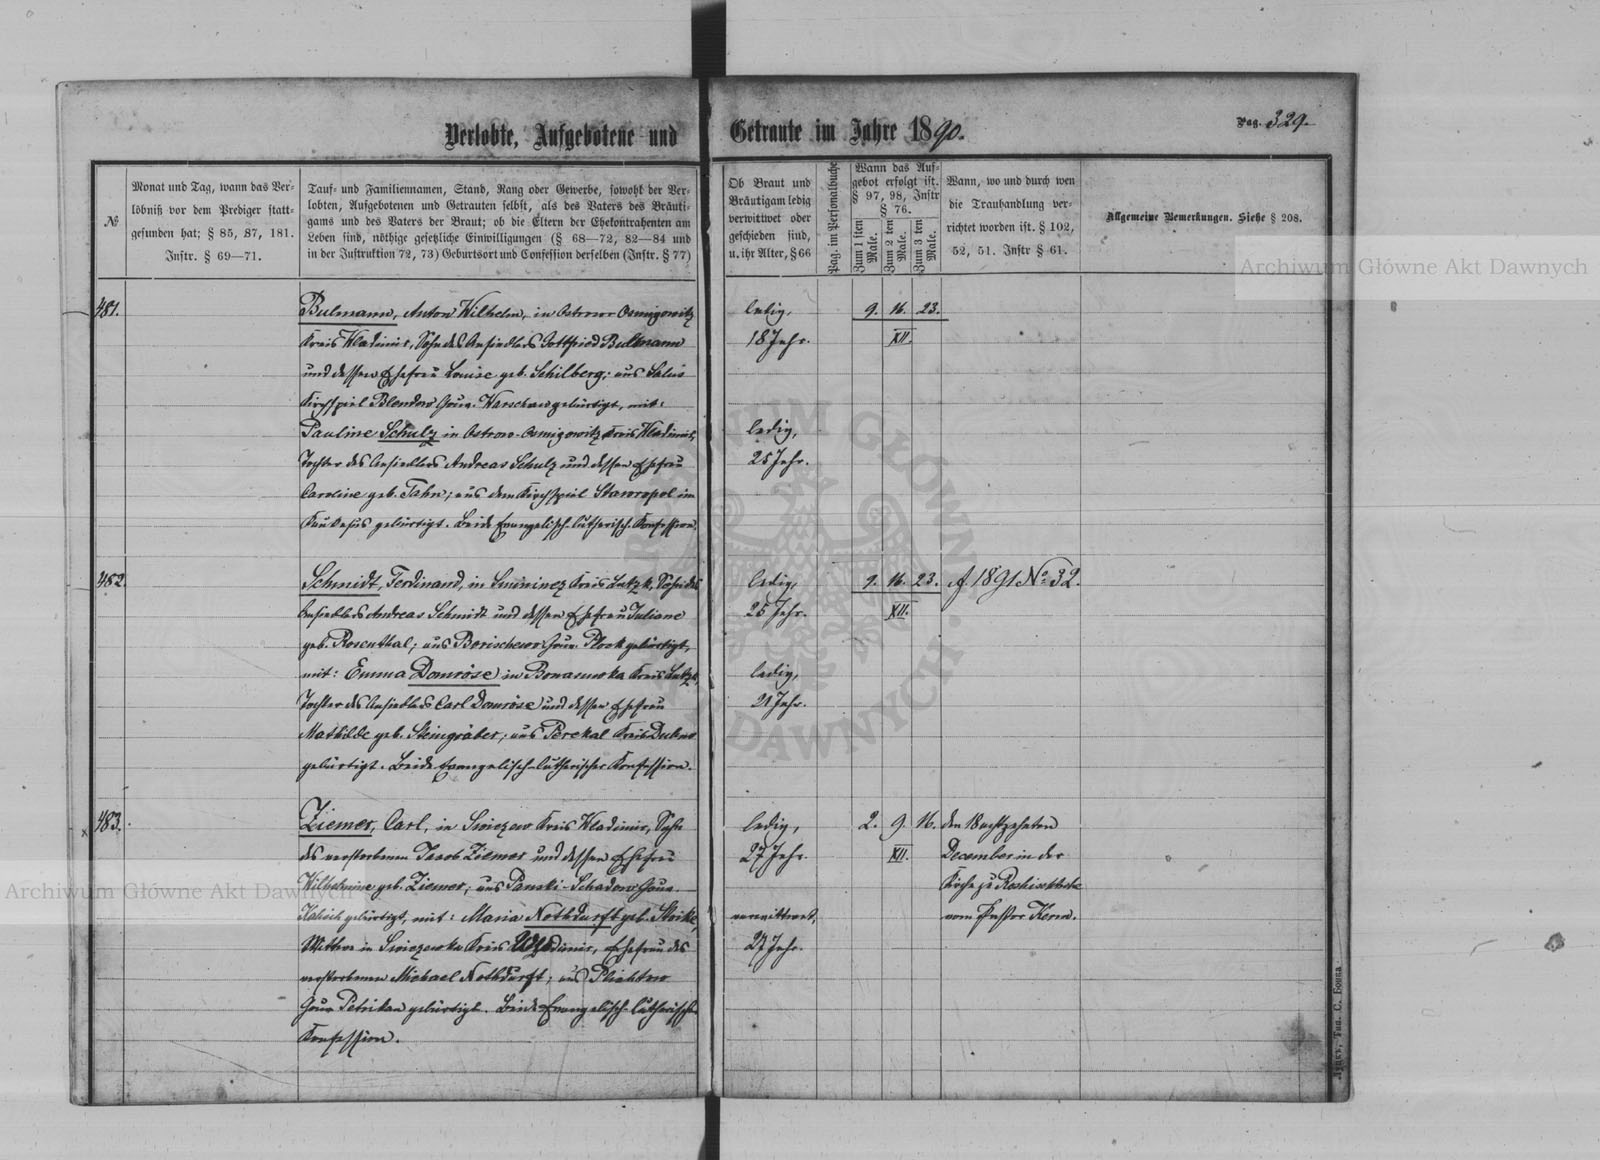 Verlobte, Aufgebotene und Getraute im Jahre 1890.
Pag. 329.
№
Monat und Tag, wann das Ver-
löbniß vor dem Prediger statt-
gefunden hat; § 85, 87, 181.
Instr. § 69—71.
Tauf- und Familiennamen, Stand, Rang oder Gewerbe, sowohl der Ver-
lobten, Aufgebotenen und Getrauten selbst, als des Vaters des Bräuti-
gams und des Vaters der Braut; ob die Eltern der Ehekontrahenten am
Leben sind, nöthige gesetzliche Einwilligungen (§ 68—72, 82—84 und
in der Instruktion 72, 73) Geburtsort und Confession derselben (Instr. § 77)
Ob Braut und
Bräutigam ledig
verwittwet oder
geschieden sind,
u. ihr Alter, § 66
Pag. im Personalbuche
Wann das Auf-
gebot erfolgt ist.
§ 97, 98, Instr
§ 76.
Zum 1 sten
Male.
Zum 2 ten
Male.
Zum 3 ten
Male.
Wann, wo und durch wen
die Trauhandlung ver-
richtet worden ist. § 102,
52, 51. Instr § 61.
Allgemeine Bemerkungen. Siehe § 208.
481.
Bulmann, Anton Wilhelm, in Ostrow Osmigowitz
Kreis Wladimir, Sohn des Ansiedlers Gottfried Bulmann
und dessen Ehefrau Louise geb. Schilberg; aus
Kirchspiel Blendow Gouv. Warschau gebürtigt, mit:
Pauline Schulz in Ostrow-Osmigowitz Kreis Wladimir,
Tochter des Ansiedlers Andreas Schulz und dessen Ehefrau
Caroline geb. Tahn; aus dem Kirchspiel Stawropol im
Kaukasus gebürtigt. Beide Evangelisch-lutherisch. Konfession.
ledig,
18 Jahr.
ledig,
25 Jahr.
9. 16. 23.
XII.
482.
Schmidt, Ferdinand, in Kreis Lutzk, Sohn des
Ansiedlers Andreas Schmidt und dessen Ehefrau Juliane
geb. Rosenthal; aus Borischewo Gouv. Plock gebürtigt,
mit: Emma Domröse in Kreis Lutzk,
Tochter des Ansiedlers Carl Domröse und dessen Ehefrau
Mathilde geb. Steingräber; aus Perekal Kreis Dubno
gebürtigt. Beide Evangelisch-lutherischer Konfession.
ledig,
25 Jahr.
ledig,
21 Jahr.
9. 16. 23.
XII.
1891 No 32.
483.
Ziemer, Carl, in Kreis Wladimir, Sohn
des verstorbenen Jacob Ziemer und dessen Ehefrau
Wilhelmine geb. Ziemer; aus Panski-Schadow Gouv.
Kalisch gebürtigt, mit: Maria Nothdurft geb.
Wittwe in Kreis Wladimir, Ehefrau des
verstorbenen Michael Nothdurft; aus
Gouv. Petrikau gebürtigt. Beide Evangelisch-lutherischer
Konfession.
ledig,
27 Jahr.
verwittwet,
27 Jahr.
2. 9. 16.
XII.
den 18 achtzehnten
December in der
Kirche zu Roshischtsche
vom Pastor Kerm.
Archiwum Główne Akt Dawnych
Archiwum Główne Akt Dawnych
Луцкъ, Тип. С. Бонка